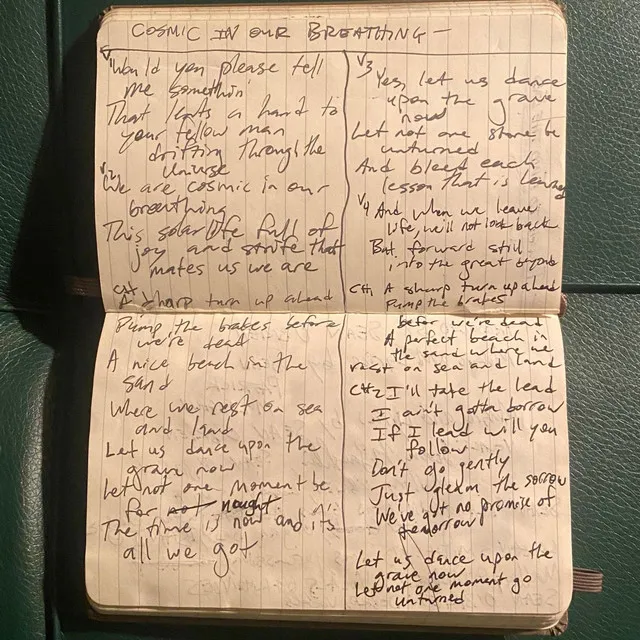 COSMIC IN OUR BREATHING —
V1
Would you please tell
me somethin'
That lends a hand to
your fellow man
drifting through the
Universe
V2
We are cosmic in our
breathing
This solar life full of
joy and strife that
makes us we are
CH1
A sharp turn up ahead
Pump the brakes before
we're dead
A nice beach in the
sand
Where we rest on sea
and land
Let us dance upon the
grave now
Let not one moment be
for not nought
The time is now and its
all we got
V3
Yes, let us dance
upon the grave
now
Let not one stone be
unturned
And bleed each
lesson that is learned
V4 And when we leave
life, we'll not look back
But forward still
into the great beyond
CH1 A sharp turn up ahead
Pump the brakes
befor we're dead
A perfect beach in
the sand where we
rest on sea and land
CH2 I'll take the lead
I ain't gotta borrow
If I lead will you
follow
Don't go gently
Just the sorrow
We've got no promise of
tomorrow
Let us dance upon the
grave now
Let not one moment go
unturned